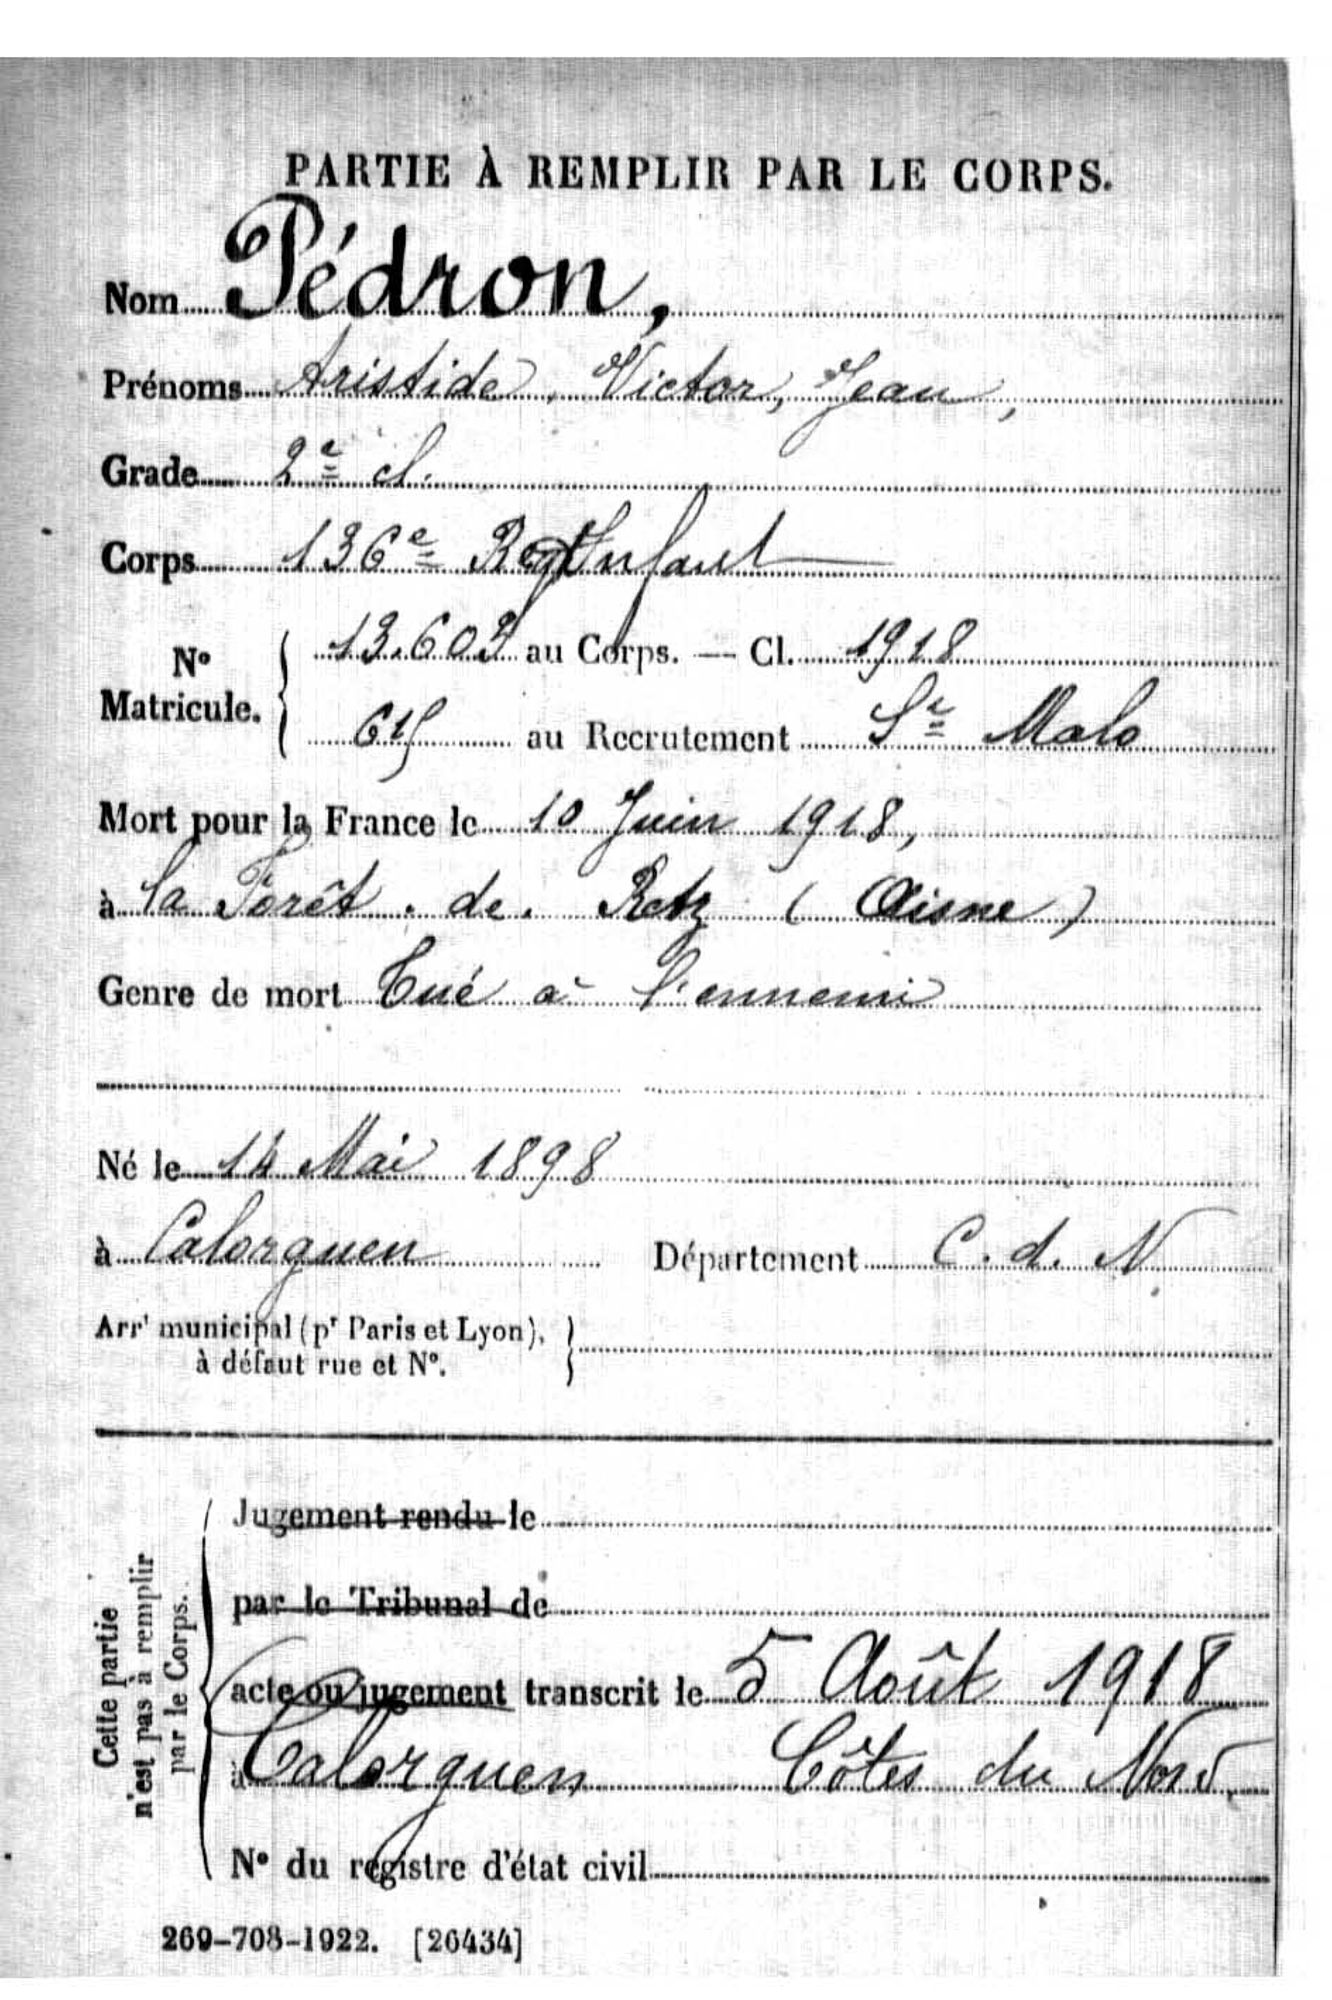 PARTIE À REMPLIR PAR LE CORPS.
Nom Pédron,
Prénoms Aristide, Victor, Jean,
Grade 2e cl.
Corps 136e Regt Infant
No Matricule. { 13.603 au Corps. — Cl. 1918
615 au Recrutement St Malo
Mort pour la France le 10 Juin 1918,
à la Forêt . de . Retz ( Aisne )
Genre de mort Tué à l'ennemi
Né le 14 Mai 1898
à Calorguen Département C. d. N.
Arrt municipal (pr Paris et Lyon), }
à défaut rue et No.
Cette partie
n'est pas à remplir
par le Corps.
Jugement rendu le
par le Tribunal de
acte ou jugement transcrit le 5 Août 1918
à Calorguen Côtes du Nord
No du registre d'état civil
269-708-1922. [26434]